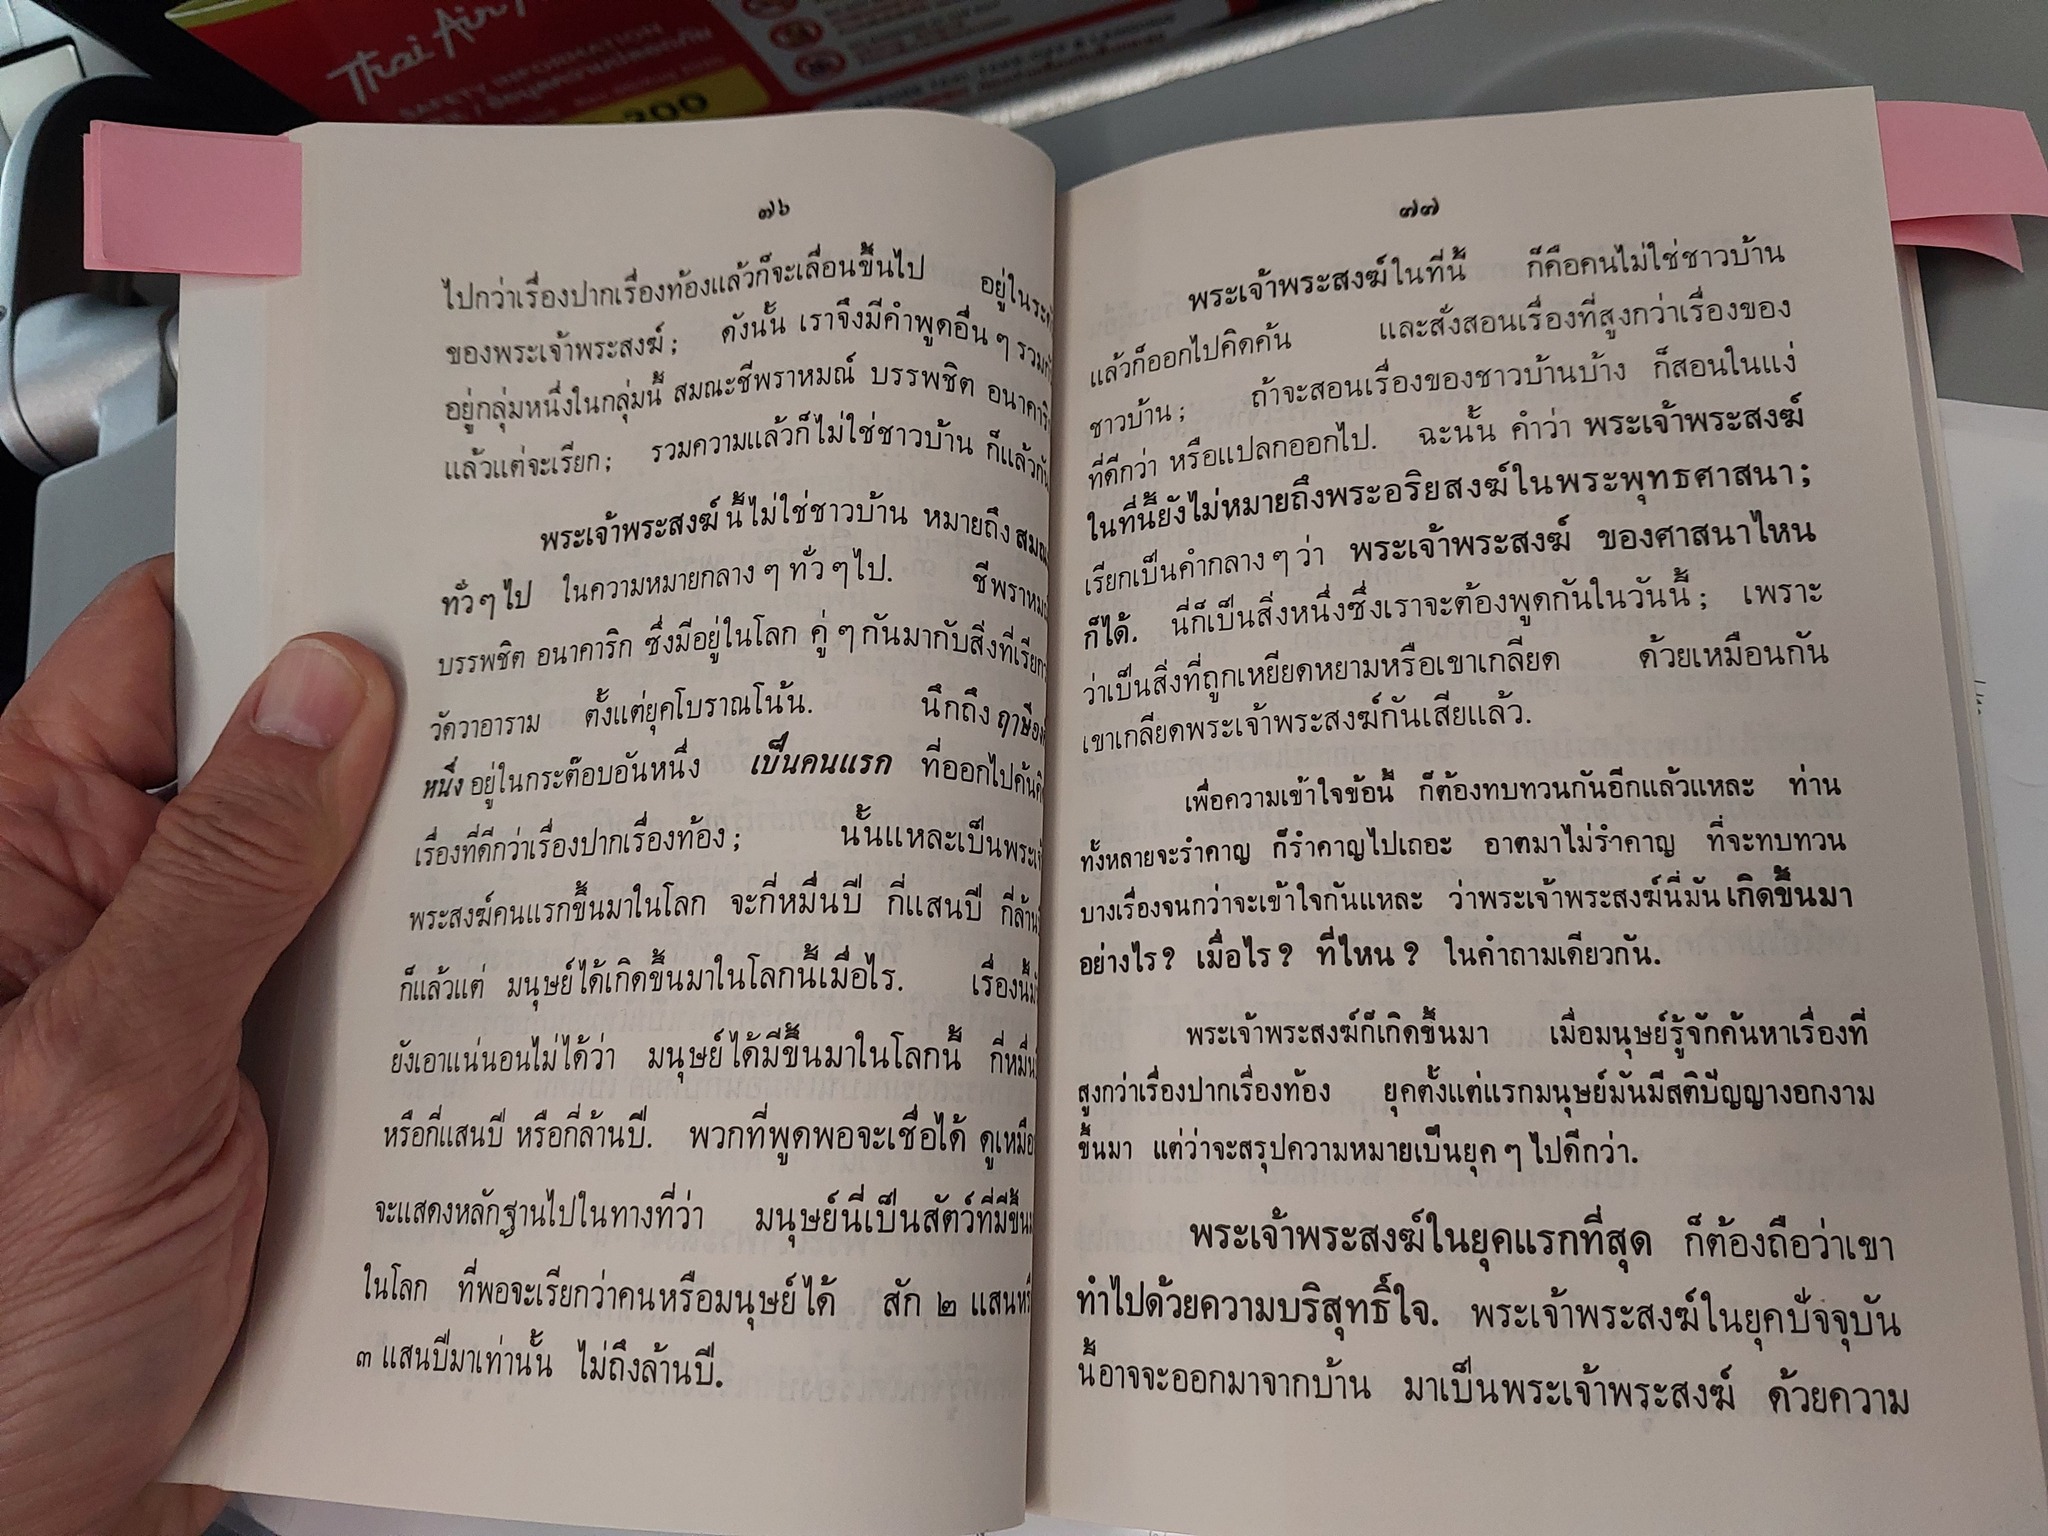 Thai Air
SAFETY INFORMATION
300
๗๖
ไปกว่าเรื่องปากเรื่องท้องแล้วก็จะเลื่อนขึ้นไป อยู่ในระดับ
ของพระเจ้าพระสงฆ์; ดังนั้น เราจึงมีคำพูดอื่น ๆ รวมกัน
อยู่กลุ่มหนึ่งในกลุ่มนี้ สมณะชีพราหมณ์ บรรพชิต อนาคาริก
แล้วแต่จะเรียก; รวมความแล้วก็ไม่ใช่ชาวบ้าน ก็แล้วกัน.
พระเจ้าพระสงฆ์ นี้ไม่ใช่ชาวบ้าน หมายถึง สมณะ
ทั่วๆไป ในความหมายกลาง ๆ ทั่วๆไป. ชีพราหมณ์
บรรพชิต อนาคาริก ซึ่งมีอยู่ในโลก คู่ ๆ กันมากับสิ่งที่เรียกว่า
วัดวาอาราม ตั้งแต่ยุคโบราณโน้น. นึกถึง ฤาษีองค์
หนึ่ง อยู่ในกระต๊อบอันหนึ่ง เป็นคนแรก ที่ออกไปค้นคิด
เรื่องที่ดีกว่าเรื่องปากเรื่องท้อง; นั้นแหละเป็นพระเจ้า
พระสงฆ์คนแรกขึ้นมาในโลก จะกี่หมื่นปี กี่แสนปี กี่ล้านปี
ก็แล้วแต่ มนุษย์ได้เกิดขึ้นมาในโลกนี้เมื่อไร. เรื่องนั้น
ยังเอาแน่นอนไม่ได้ว่า มนุษย์ได้มีขึ้นมาในโลกนี้ กี่หมื่นปี
หรือกี่แสนปี หรือกี่ล้านปี. พวกที่พูดพอจะเชื่อได้ ดูเหมือน
จะแสดงหลักฐานไปในทางที่ว่า มนุษย์นี่เป็นสัตว์ที่มีขึ้นมา
ในโลก ที่พอจะเรียกว่าคนหรือมนุษย์ได้ สัก ๒ แสนหรือ
๓ แสนปีมาเท่านั้น ไม่ถึงล้านปี.
๗๗
พระเจ้าพระสงฆ์ในที่นี้ ก็คือคนไม่ใช่ชาวบ้าน
แล้วก็ออกไปคิดค้น และสั่งสอนเรื่องที่สูงกว่าเรื่องของ
ชาวบ้าน; ถ้าจะสอนเรื่องของชาวบ้านบ้าง ก็สอนในแง่
ที่ดีกว่า หรือแปลกออกไป. ฉะนั้น คำว่า พระเจ้าพระสงฆ์
ในที่นี้ยังไม่หมายถึงพระอริยสงฆ์ในพระพุทธศาสนา;
เรียกเป็นคำกลาง ๆ ว่า พระเจ้าพระสงฆ์ ของศาสนาไหน
ก็ได้. นี่ก็เป็นสิ่งหนึ่งซึ่งเราจะต้องพูดกันในวันนี้; เพราะ
ว่าเป็นสิ่งที่ถูกเหยียดหยามหรือเขาเกลียด ด้วยเหมือนกัน
เขาเกลียดพระเจ้าพระสงฆ์กันเสียแล้ว.
เพื่อความเข้าใจข้อนี้ ก็ต้องทบทวนกันอีกแล้วแหละ ท่าน
ทั้งหลายจะรำคาญ ก็รำคาญไปเถอะ อาตมาไม่รำคาญ ที่จะทบทวน
บางเรื่องจนกว่าจะเข้าใจกันแหละ ว่าพระเจ้าพระสงฆ์นี่มัน เกิดขึ้นมา
อย่างไร? เมื่อไร? ที่ไหน? ในคำถามเดียวกัน.
พระเจ้าพระสงฆ์ก็เกิดขึ้นมา เมื่อมนุษย์รู้จักค้นหาเรื่องที่
สูงกว่าเรื่องปากเรื่องท้อง ยุคตั้งแต่แรกมนุษย์มันมีสติปัญญางอกงาม
ขึ้นมา แต่ว่าจะสรุปความหมายเป็นยุค ๆ ไปดีกว่า.
พระเจ้าพระสงฆ์ในยุคแรกที่สุด ก็ต้องถือว่าเขา
ทำไปด้วยความบริสุทธิ์ใจ. พระเจ้าพระสงฆ์ในยุคปัจจุบัน
นี้อาจจะออกมาจากบ้าน มาเป็นพระเจ้าพระสงฆ์ ด้วยความ